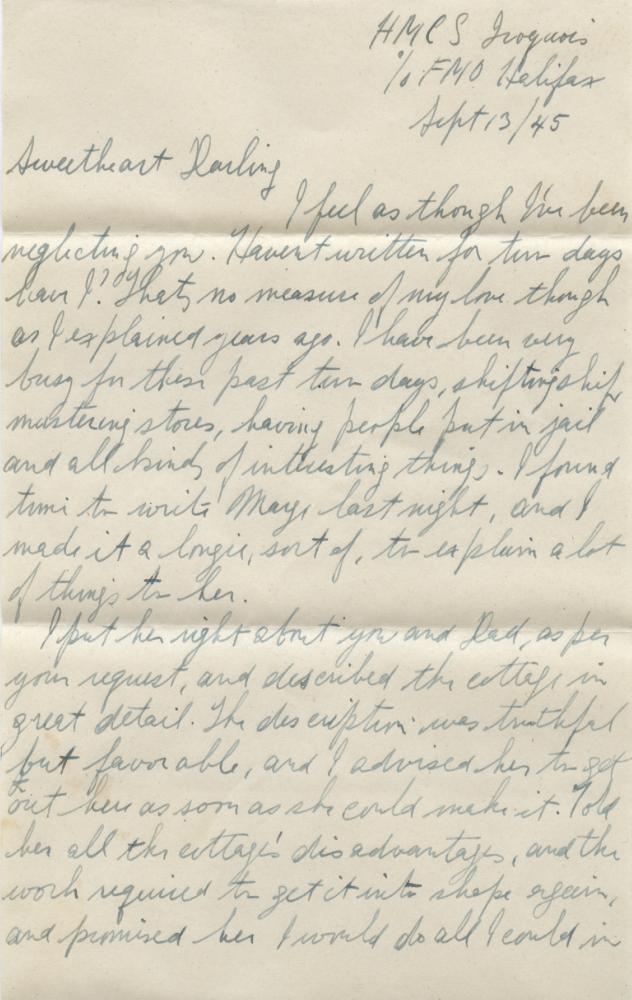 HMCS Iroquois
% FMO Halifax
Sept 13/45
Sweetheart Darling
I feel as though I've been
neglecting you. Havent written for two days
have I? Thats no measure of my love though
as I explained years ago. I have been very
busy for these past two days, shifting ship,
mustering stores, having people put in jail
and all kinds of interesting things. I found
time to write Marge last night, and I
made it a longie, sort of, to explain a lot
of things to her.
I put her right about you and Dad, as per
your request, and described the cottage in
great detail. The description was truthful
but favorable, and I advised her to get
out here as soon as she could make it. Told
her all the cottage's disadvantages, and the
work required to get it into shape again,
and promised her I would do all I could in